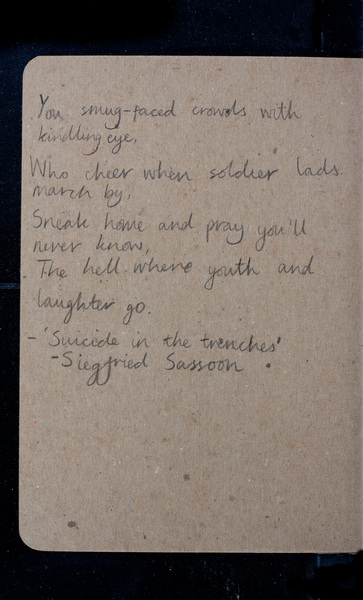 You smug-faced crowds with
kindling eye,
Who cheer when soldier lads
march by,
Sneak home and pray you'll
never know,
The hell where youth and
laughter go.
- 'Suicide in the trenches'
- Siegfried Sassoon.